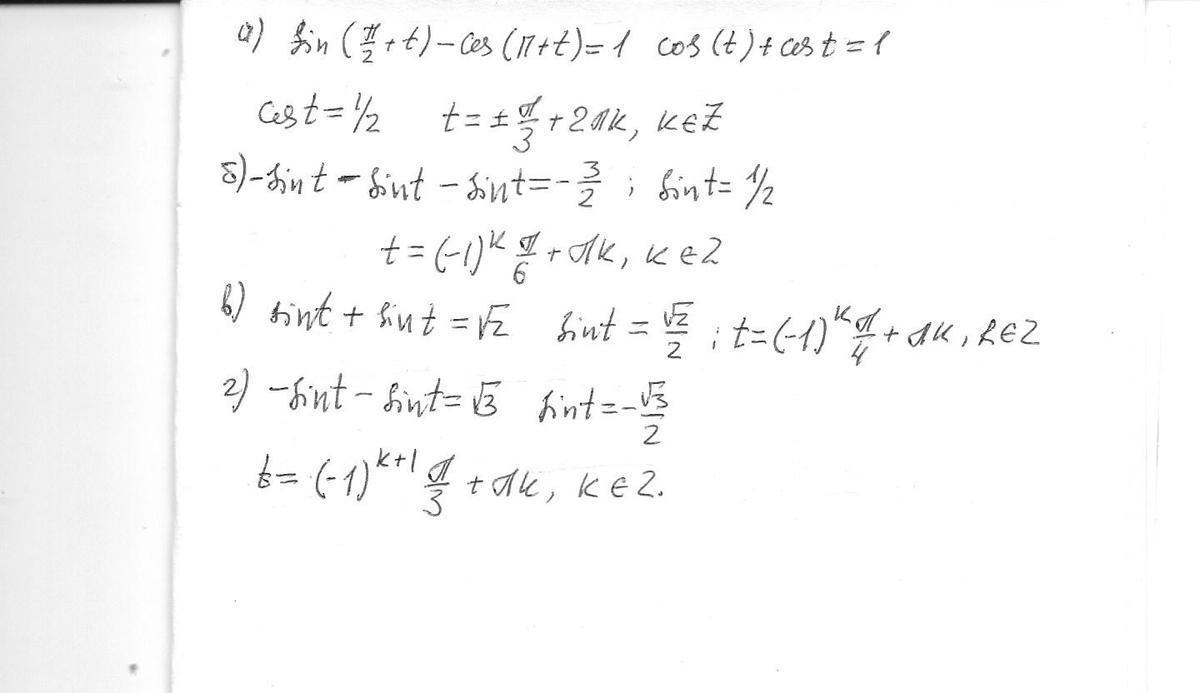 а) sin (π/2 + t) - cos (π + t) = 1 cos (t) + cos t = 1
cos t = 1/2 t = ± π/3 + 2πk, k ∈ Z
б) - sin t - sin t - sin t = - 3/2 ; sin t = 1/2
t = (-1)^k π/6 + πk, k ∈ Z
в) sin t + sin t = √2 sin t = √2/2 ; t = (-1)^k π/4 + πk, k ∈ Z
г) - sin t - sin t = √3 sin t = - √3/2
t = (-1)^{k+1} π/3 + πk, k ∈ Z.